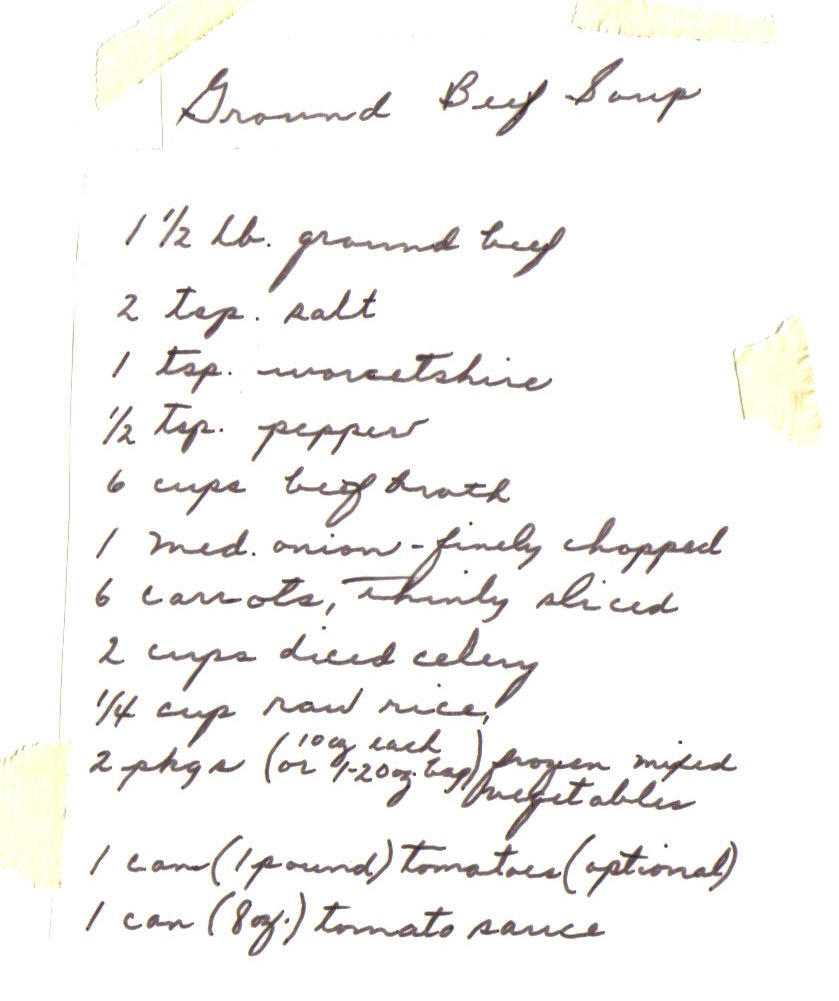 Ground Beef Soup
1 1/2 lb. ground beef
2 tsp. salt
1 tsp. worcetshire
1/2 tsp. pepper
6 cups beef broth
1 med. onion - finely chopped
6 carrots, thinly sliced
2 cups diced celery
1/4 cup raw rice,
2 pkgs (10 oz each or 1-20 oz. bag) frozen mixed
vegetables
1 can (1 pound) tomatoes (optional)
1 can (8 oz.) tomato sauce